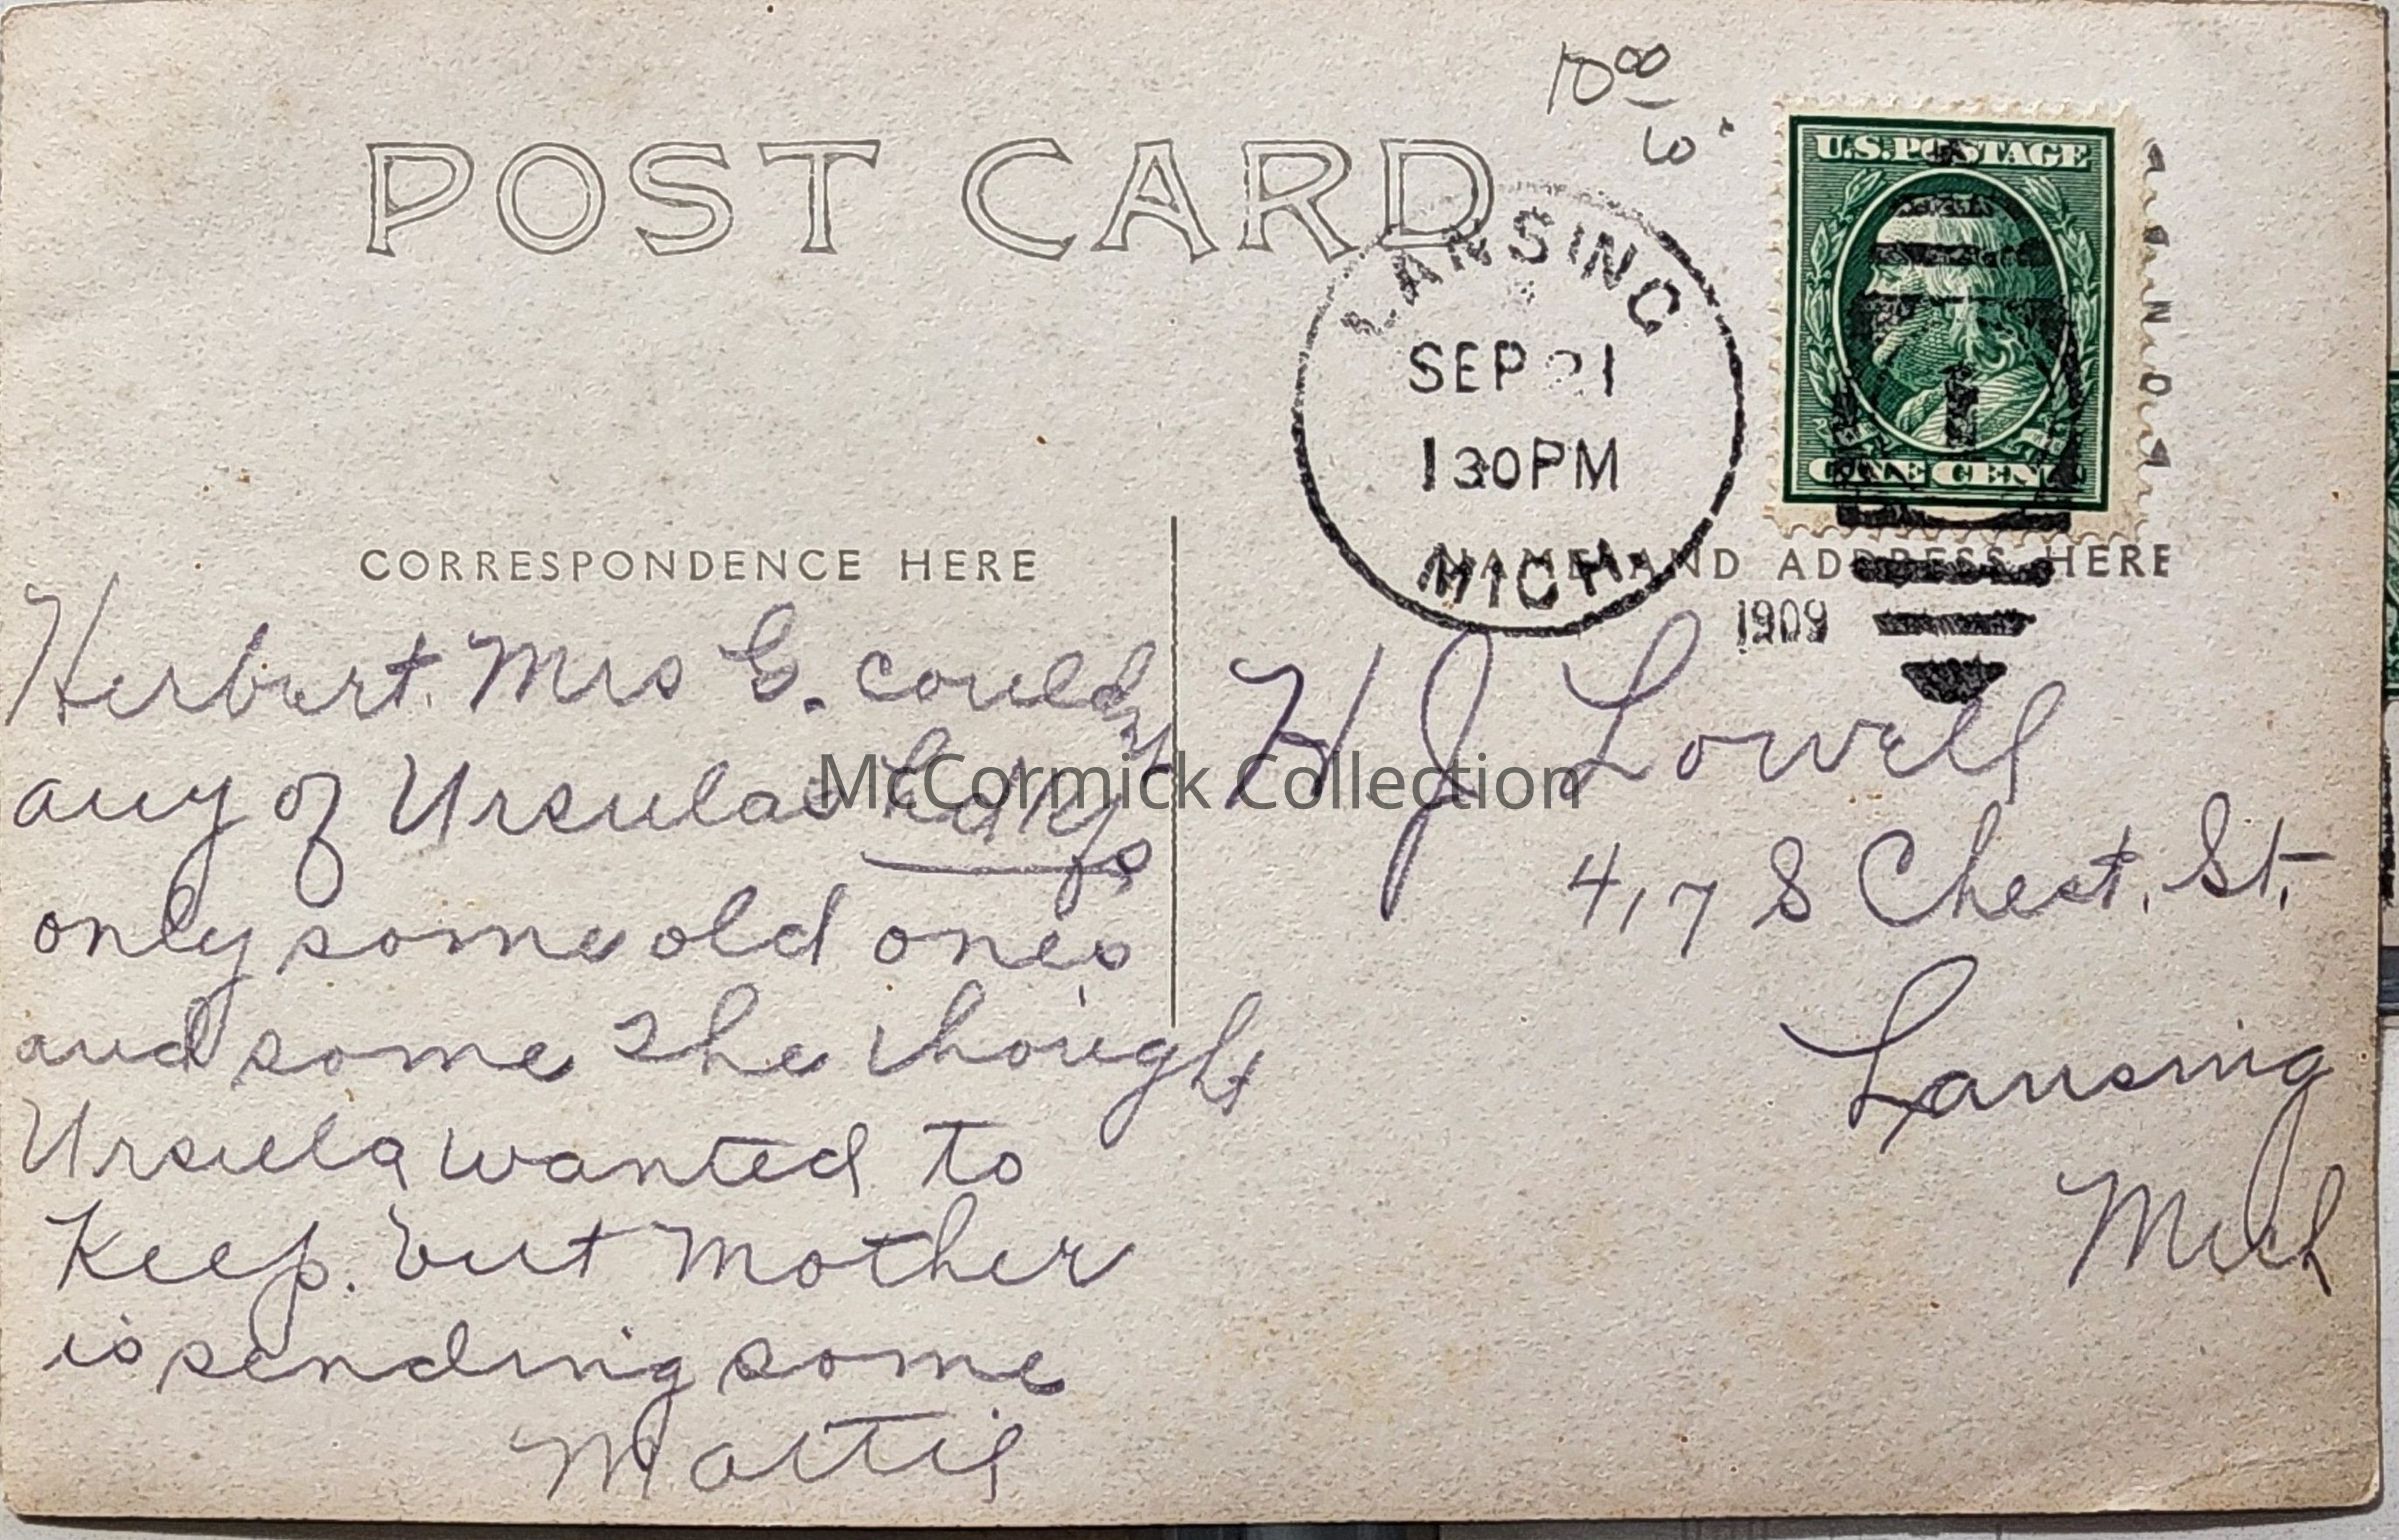 10⁰⁰
POST CARD
U.S. POSTAGE
ONE CENT
LANSING
SEP 21
130PM
MICH.
1909
CORRESPONDENCE HERE
NAME AND ADDRESS HERE
Herbert. Mrs G. could
any of Ursulas
only some old ones
and some she thought
Ursula wanted to
Keep. but Mother
is sending some
Mattie
H J Lowell
417 S Chest. St.
Lansing
Mich
McCormick Collection